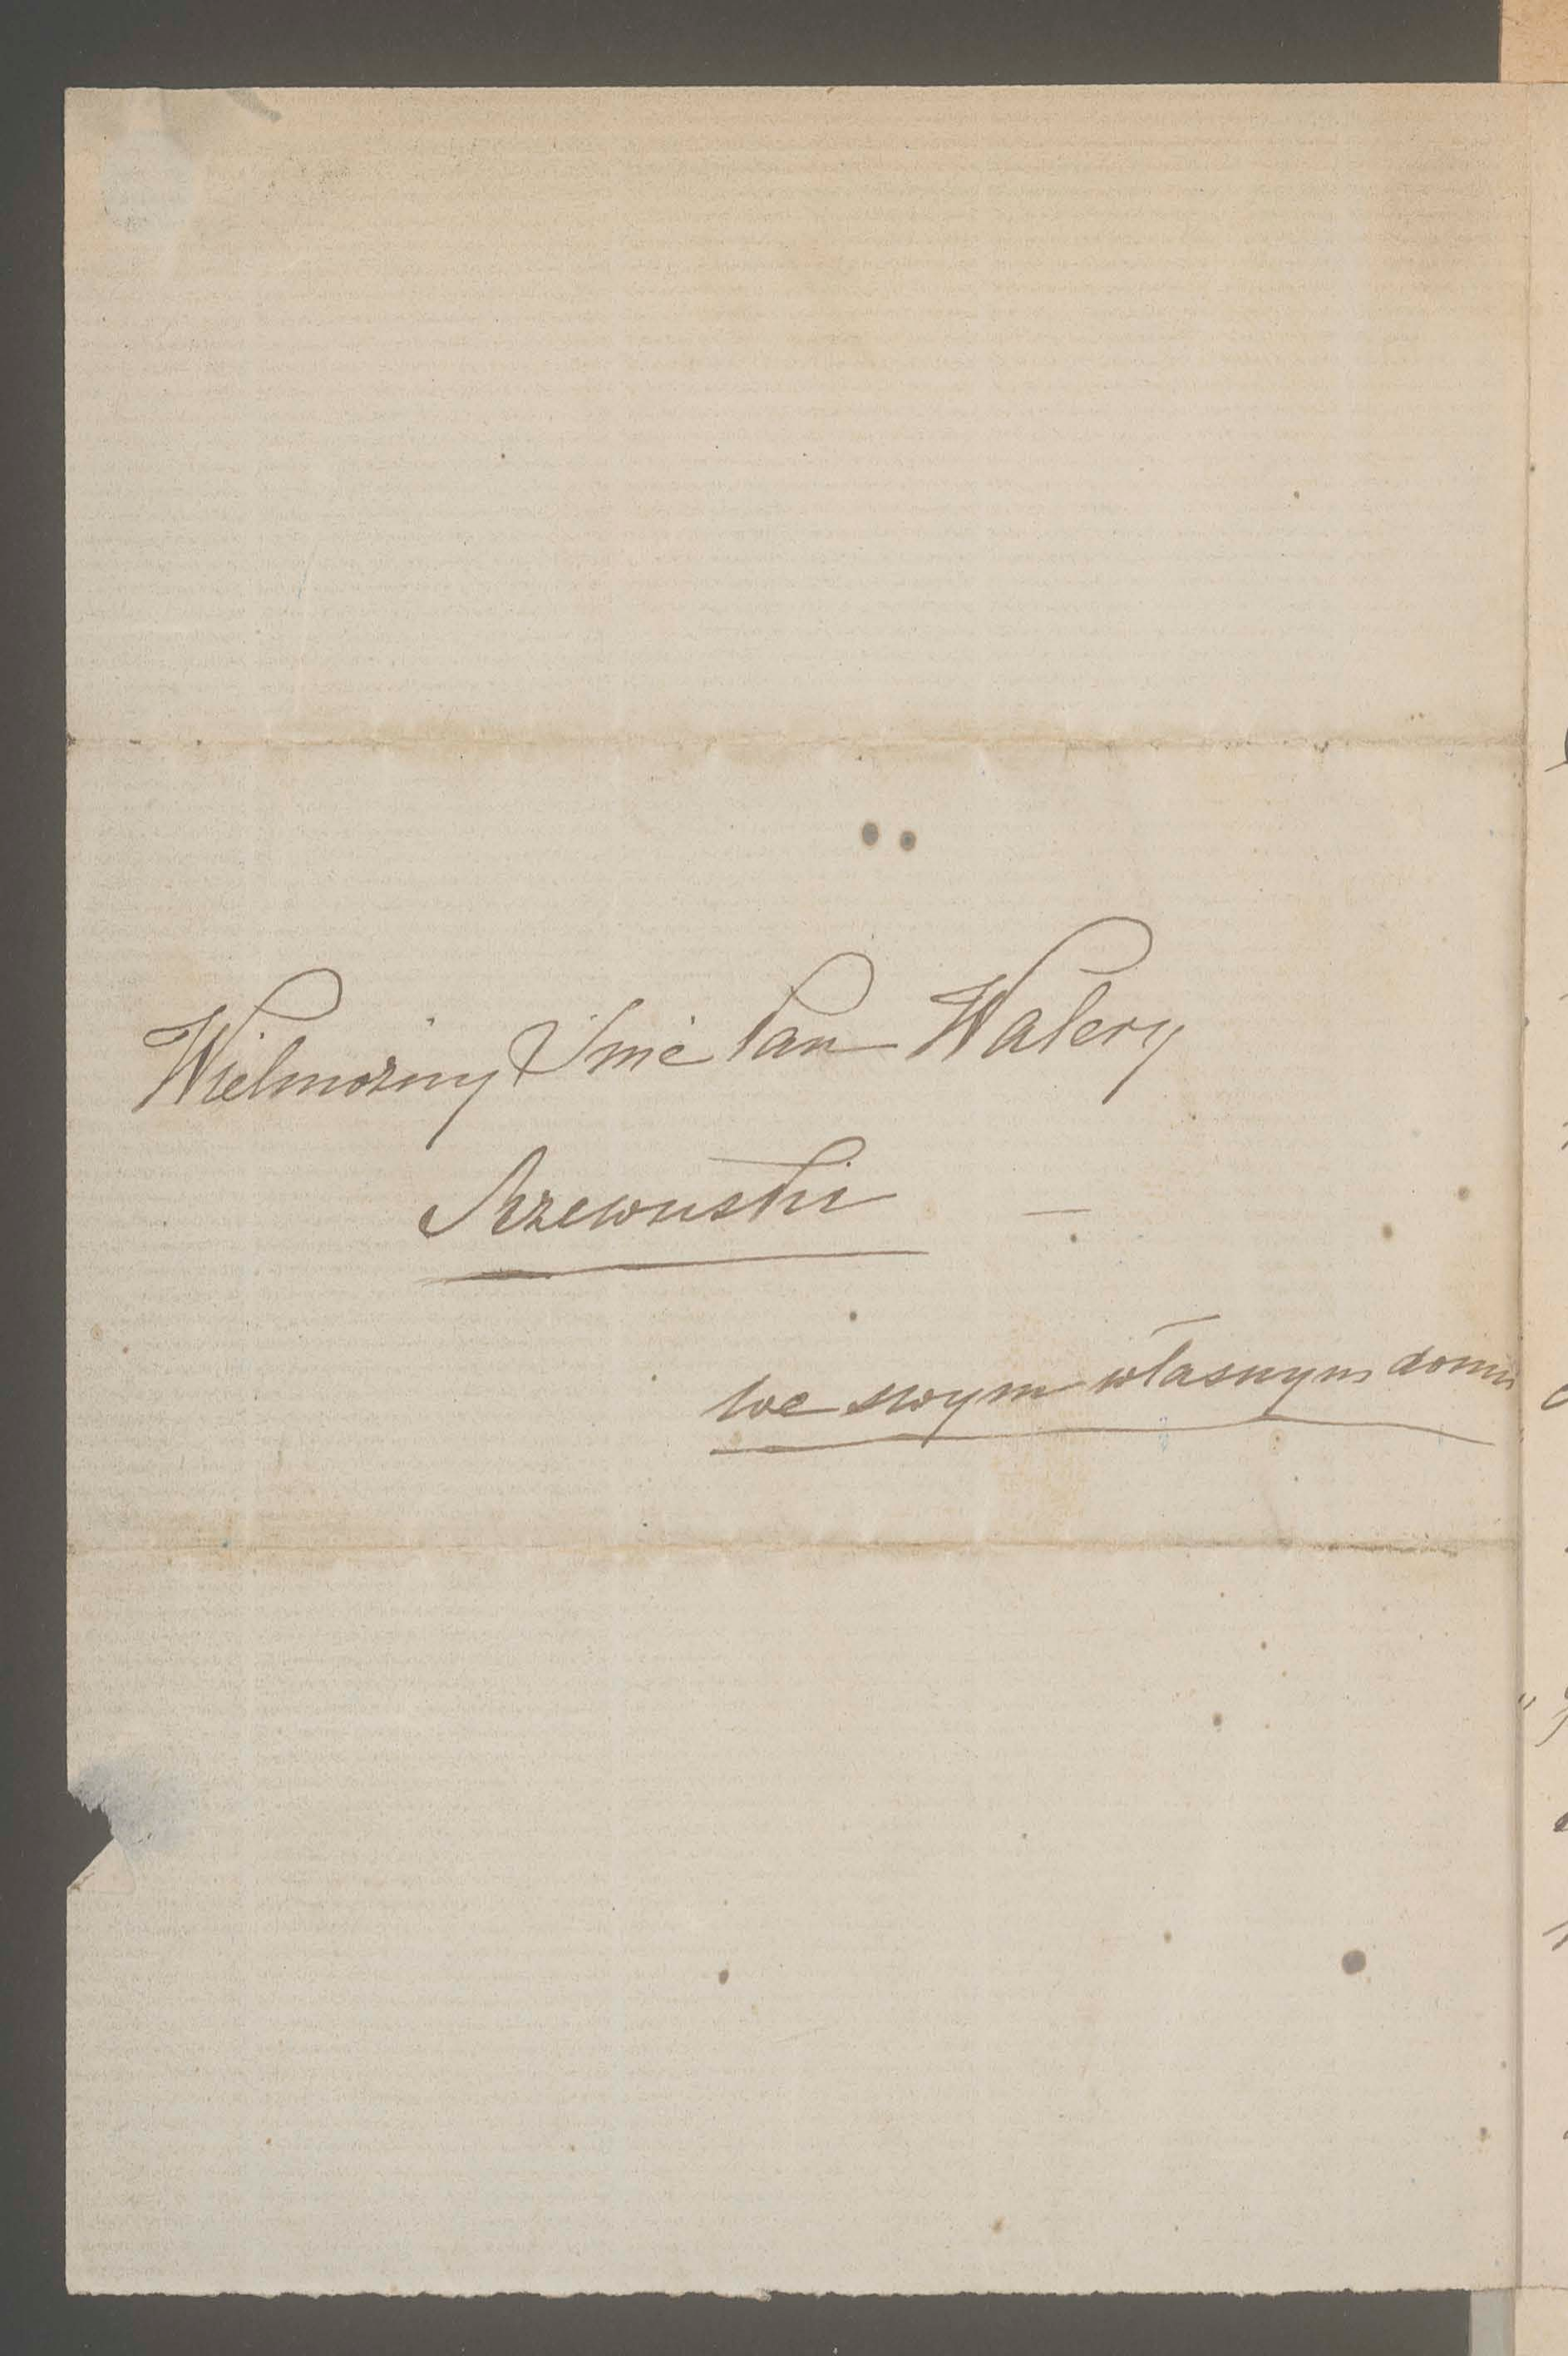 Wielmożny Jmć Pan Walery
Rzewuski —
we swym własnym domu